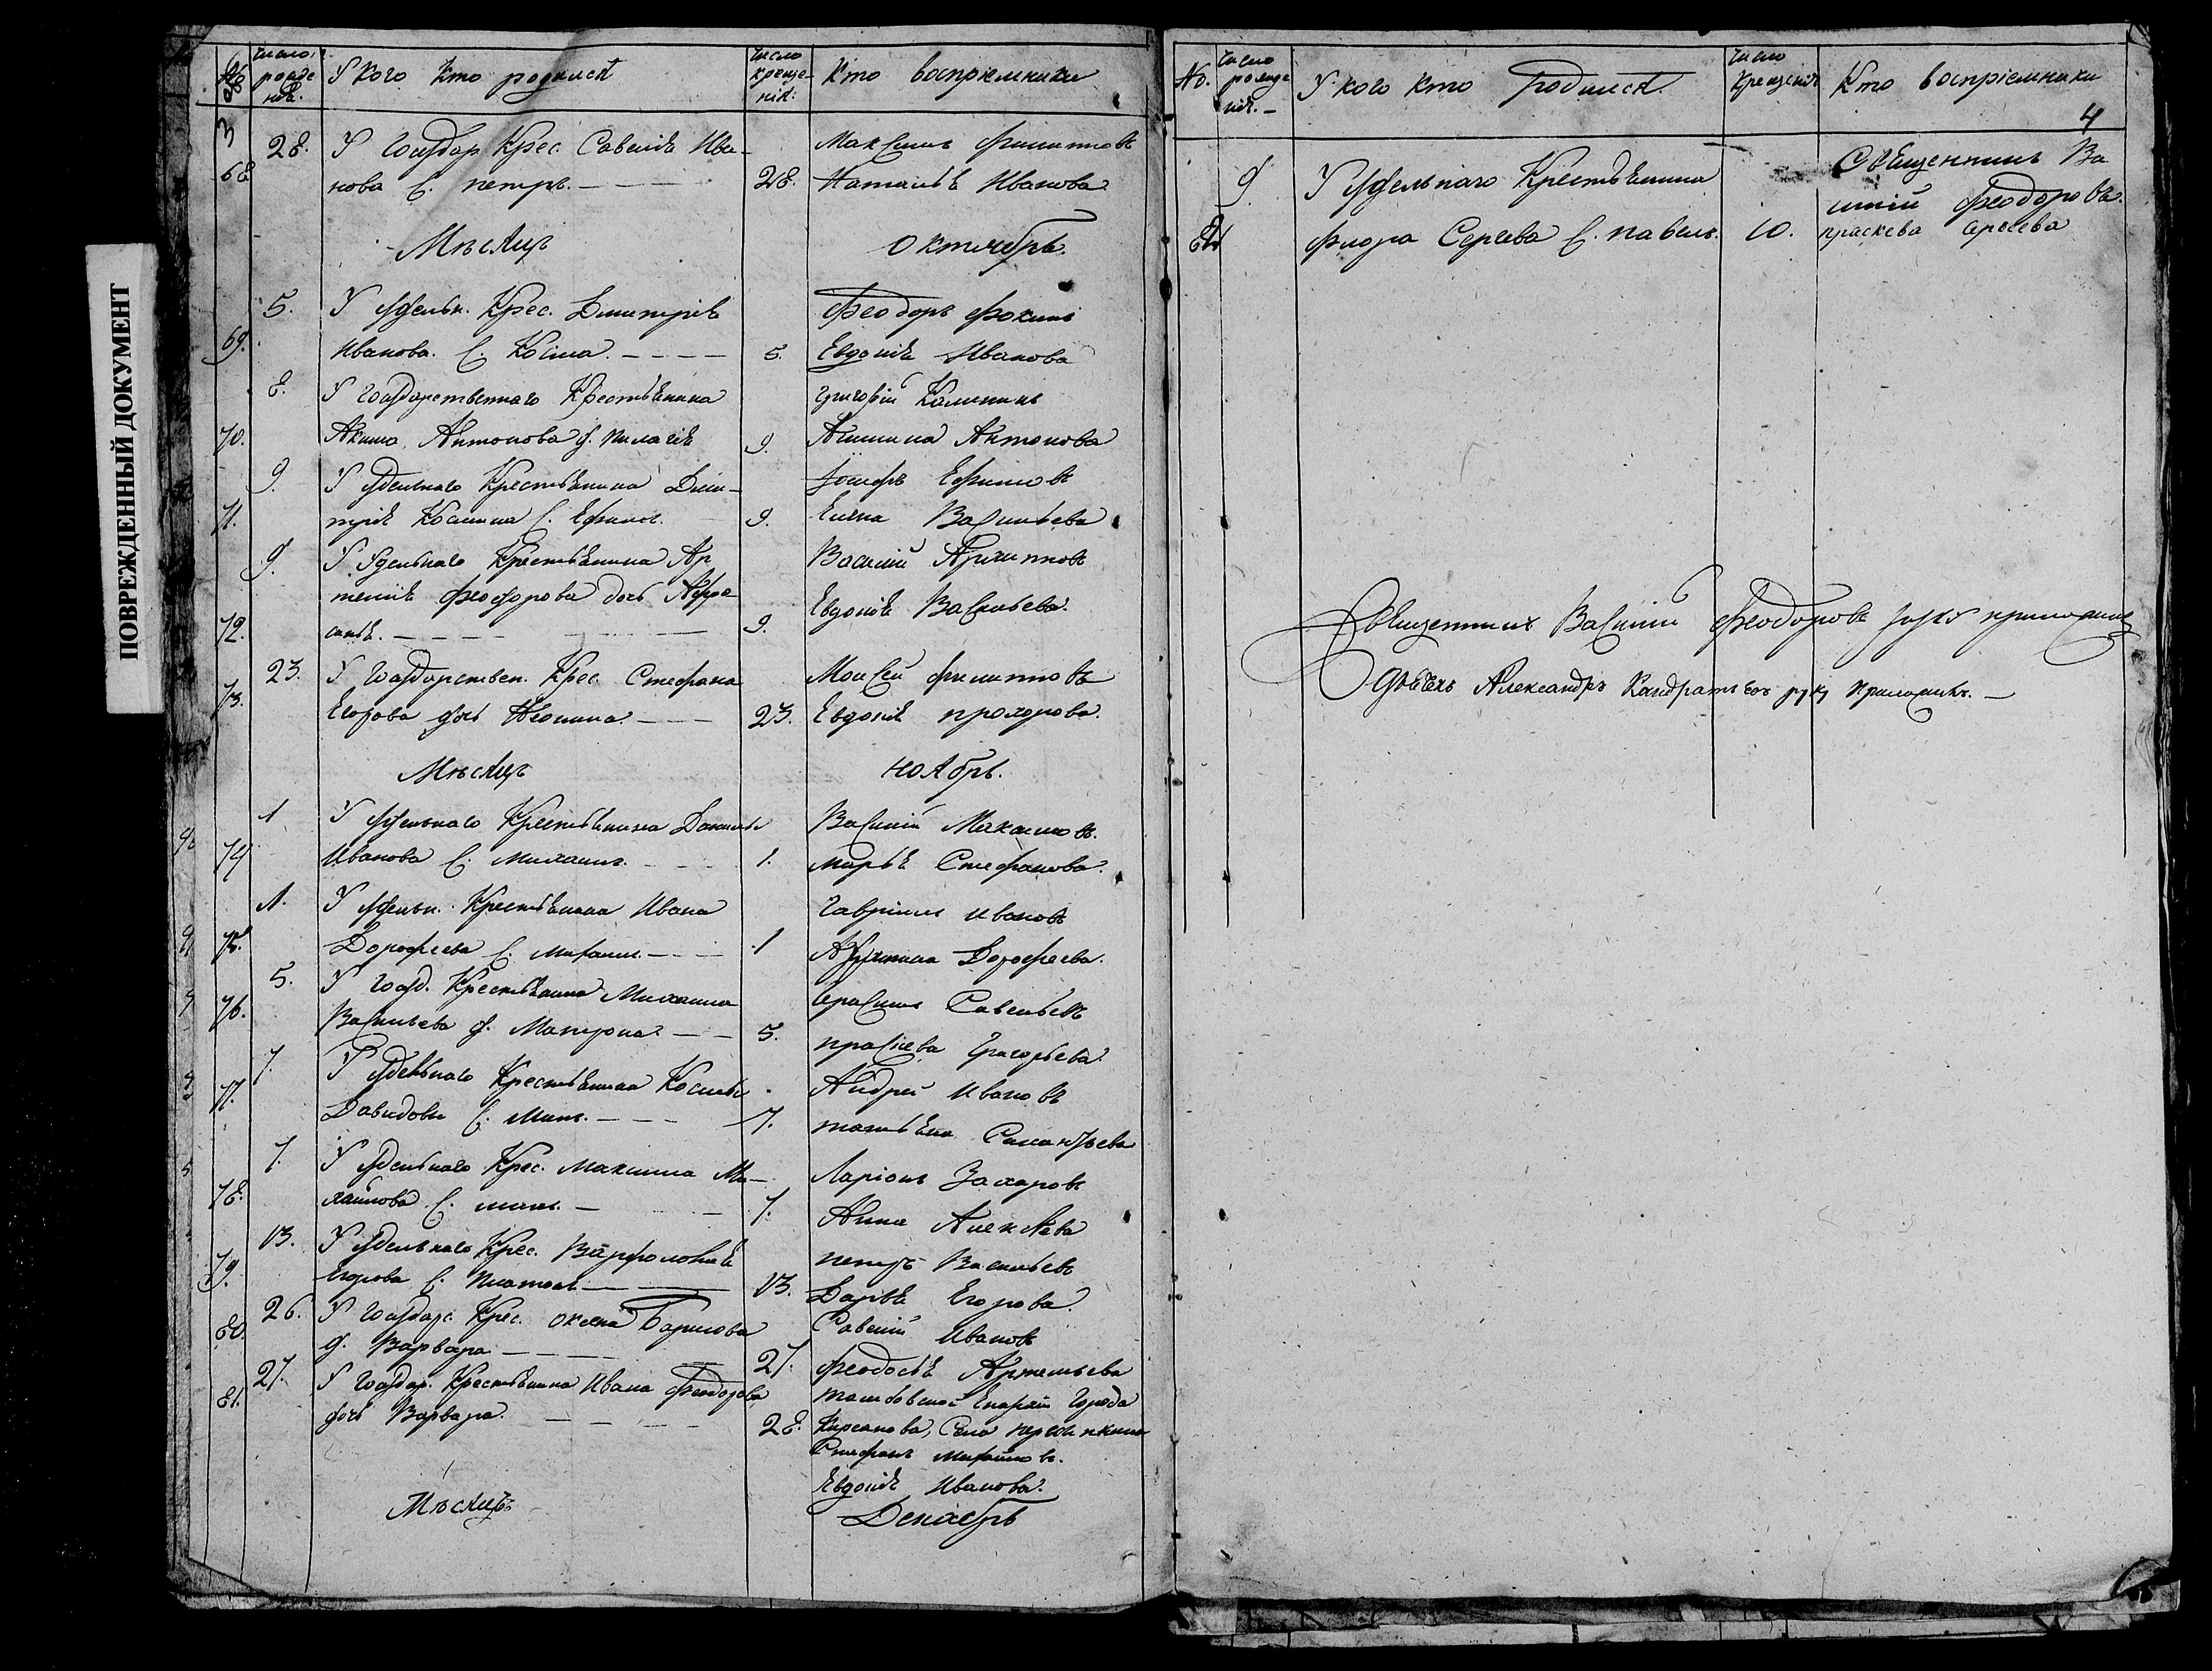 ПОВРЕЖДЕННЫЙ ДОКУМЕНТ
№
число рожде нія.
У кого кто родился
число креще- нія:
Кто воспріемники
3
68 28. У Государ Крес. Савелія Ива-
нова С. петръ. 28.
Максимъ Филипповъ
Наталія Иванова
Мѣсяцъ Октябрь.
69. 5. У Удельн. Крес. Дмитрія
Иванова. С. Косма. 5.
Феодоръ Фокинъ
Евдокія Иванова
70. 8. У Государственнаго Крестьянина
Акима Антонова д. пилагія 9.
Григорій Калининъ
Антонова
71. 9. У Удельнаго Крестьянина Дми-
трія Космина С. Ефимъ. 9.
Іосифъ Ефимовъ
Елена Васильева
72. 9. У Удельнаго Крестьянина Ар
темія Феодорова дочь Афро
синья. 9.
Василій Архиповъ
Евдокія Васильева.
73. 23. У Государствен. Крес. Стефана
Егорова дочь 23.
Моисей Филипповъ
Евдокія прохорова.
Мѣсяцъ ноябрь.
74 1 У Удельнаго Крестьянина Данилы
Иванова С. Михаилъ. 1.
Василій Максимовъ.
марья Стефанова.
75. 1. У Удельн. Крестьянина Ивана
Дорофеева С. Михаилъ. 1
Гавріилъ Ивановъ
Дорофеева.
76. 5. У Госуд. Крестьянина Михаила
Васильева д. Матрона. 5.
Герасимъ Савельевъ
праскева Григорьева
77. 7. У Удельнаго Крестьянина Космы
Давидова С. 7.
Андрей Ивановъ
татьяна
78. 7. У Удельнаго Крес. Максима Ми-
хайлова С. 7.
Ларіонъ Захаровъ
Анна Алексѣева
79. 13. У Удельнаго Крес. Варфоломея
Егорова С. Платонъ 13.
петръ Васильевъ
Дарья Егорова.
80. 26. У Государс. Крес. Борисова
д. Варвара 27.
Савелій Ивановъ
Феодосья Артемьева
81. 27. У Государ. Крестьянина Ивана Феодорова
дочь Варвара. 28.
Тамбовской Епархіи Города
Кирсанова, Села
Стефанъ Михайловъ.
Евдокія Иванова.
Мѣсяцъ Декабрь
No.
число рожде нія.
У кого кто родился.
число крещенія
Кто воспріемники
4
9. У Удельнаго Крестьянина
Флора Сергева С. павелъ. 10.
Священникъ Ва
силій Феодоровъ.
праскева
Священникъ Василій Феодоровъ руку приложилъ
Дьячекъ Александръ Кандратьевъ руку приложилъ.